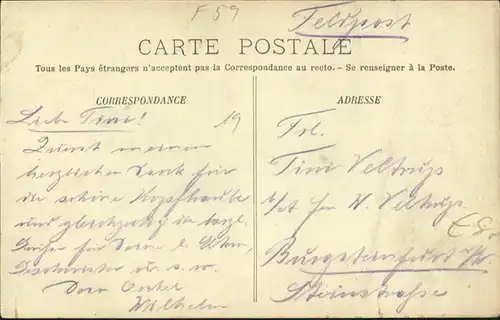 F 59
Feldpost
CARTE POSTALE
Tous les Pays étrangers n'acceptent pas la Correspondance au recto. - Se renseigner à la Poste.
CORRESPONDANCE
Liebe Tini!
19
Zuerst meinen
herzlichen Dank für
die schöne Kopfhaube
und gleichzeitig die herzl.
Grüße für Deine l. Eltern,
Geschwister u. s. w.
Dein Onkel
Wilhelm
ADRESSE
Frl.
Tini Veltrup
W. Veltrup
Burgsteinfurt i/W.
Steinstrasse